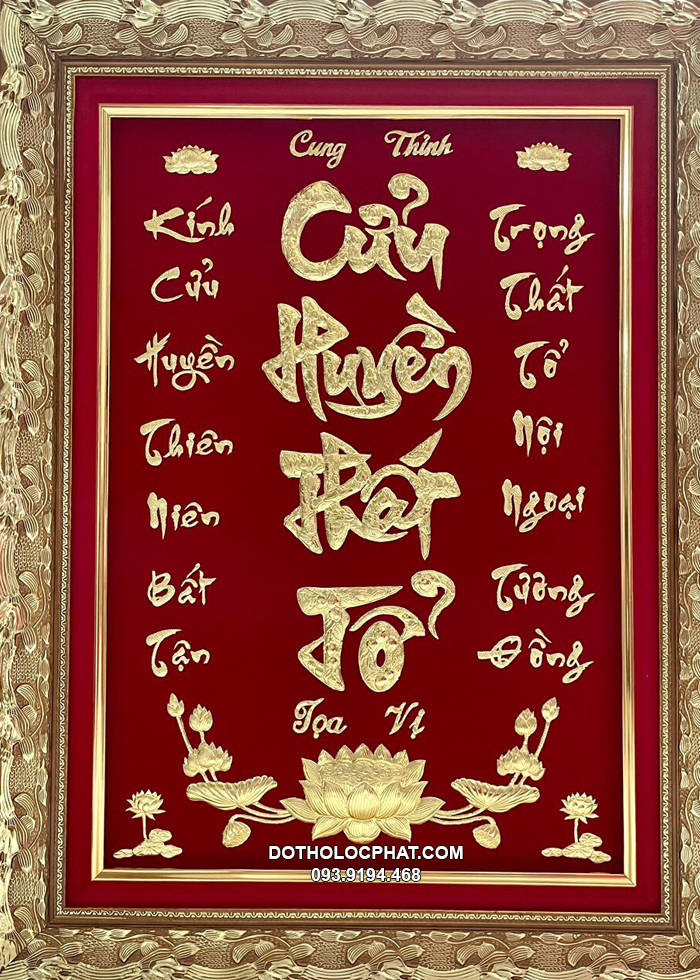 Cung Thỉnh
Kính
Cửu
Huyền
Thiên
Niên
Bất
Tận
Cửu
Huyền
Thất
Tổ
Trọng
Thất
Tổ
Nội
Ngoại
Tường
Đồng
Tọa Vị
DOTHOLOCPHAT.COM
093.9194.468